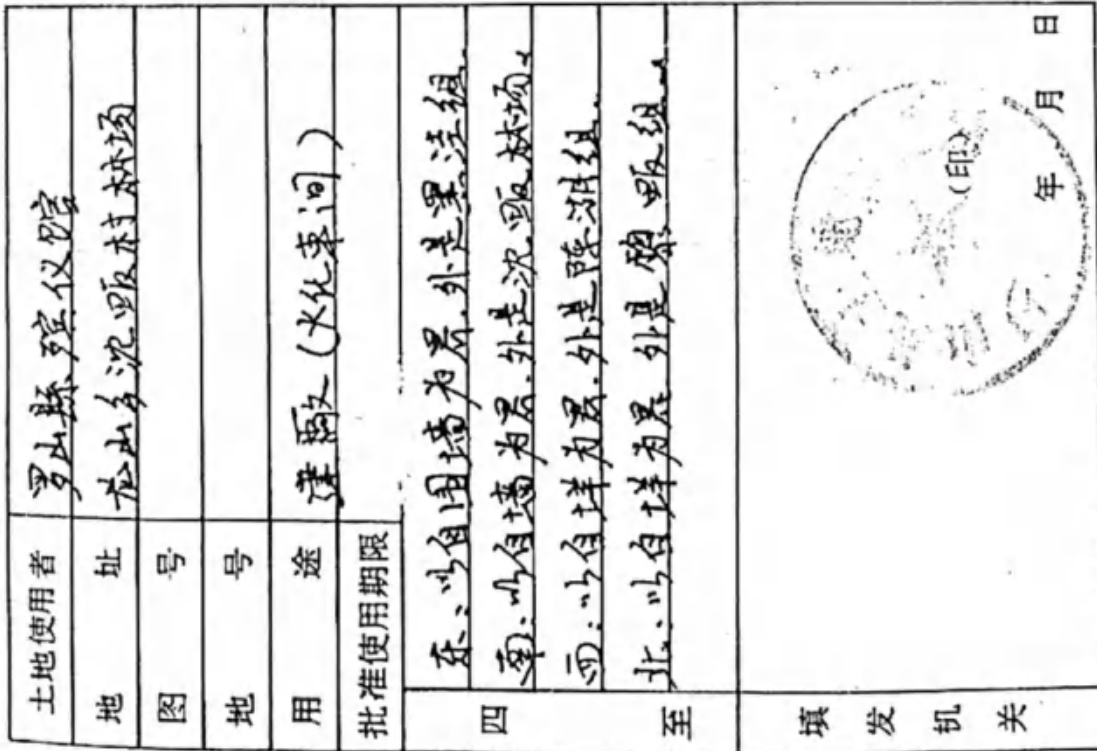 土地使用者 罗山縣殡仪馆
地址 龙山乡沈畈村林场
图号
地号
用途 建殿(火化车间)
批准使用期限
四至
东:以自围墙为界.外是黑洼组.
南:以自墙为界.外是沈畈林场.
西:以自垟为界.外是陈湖组.
北:以自垟为界 外是 畈组.
填发机关
(印)
年 月 日